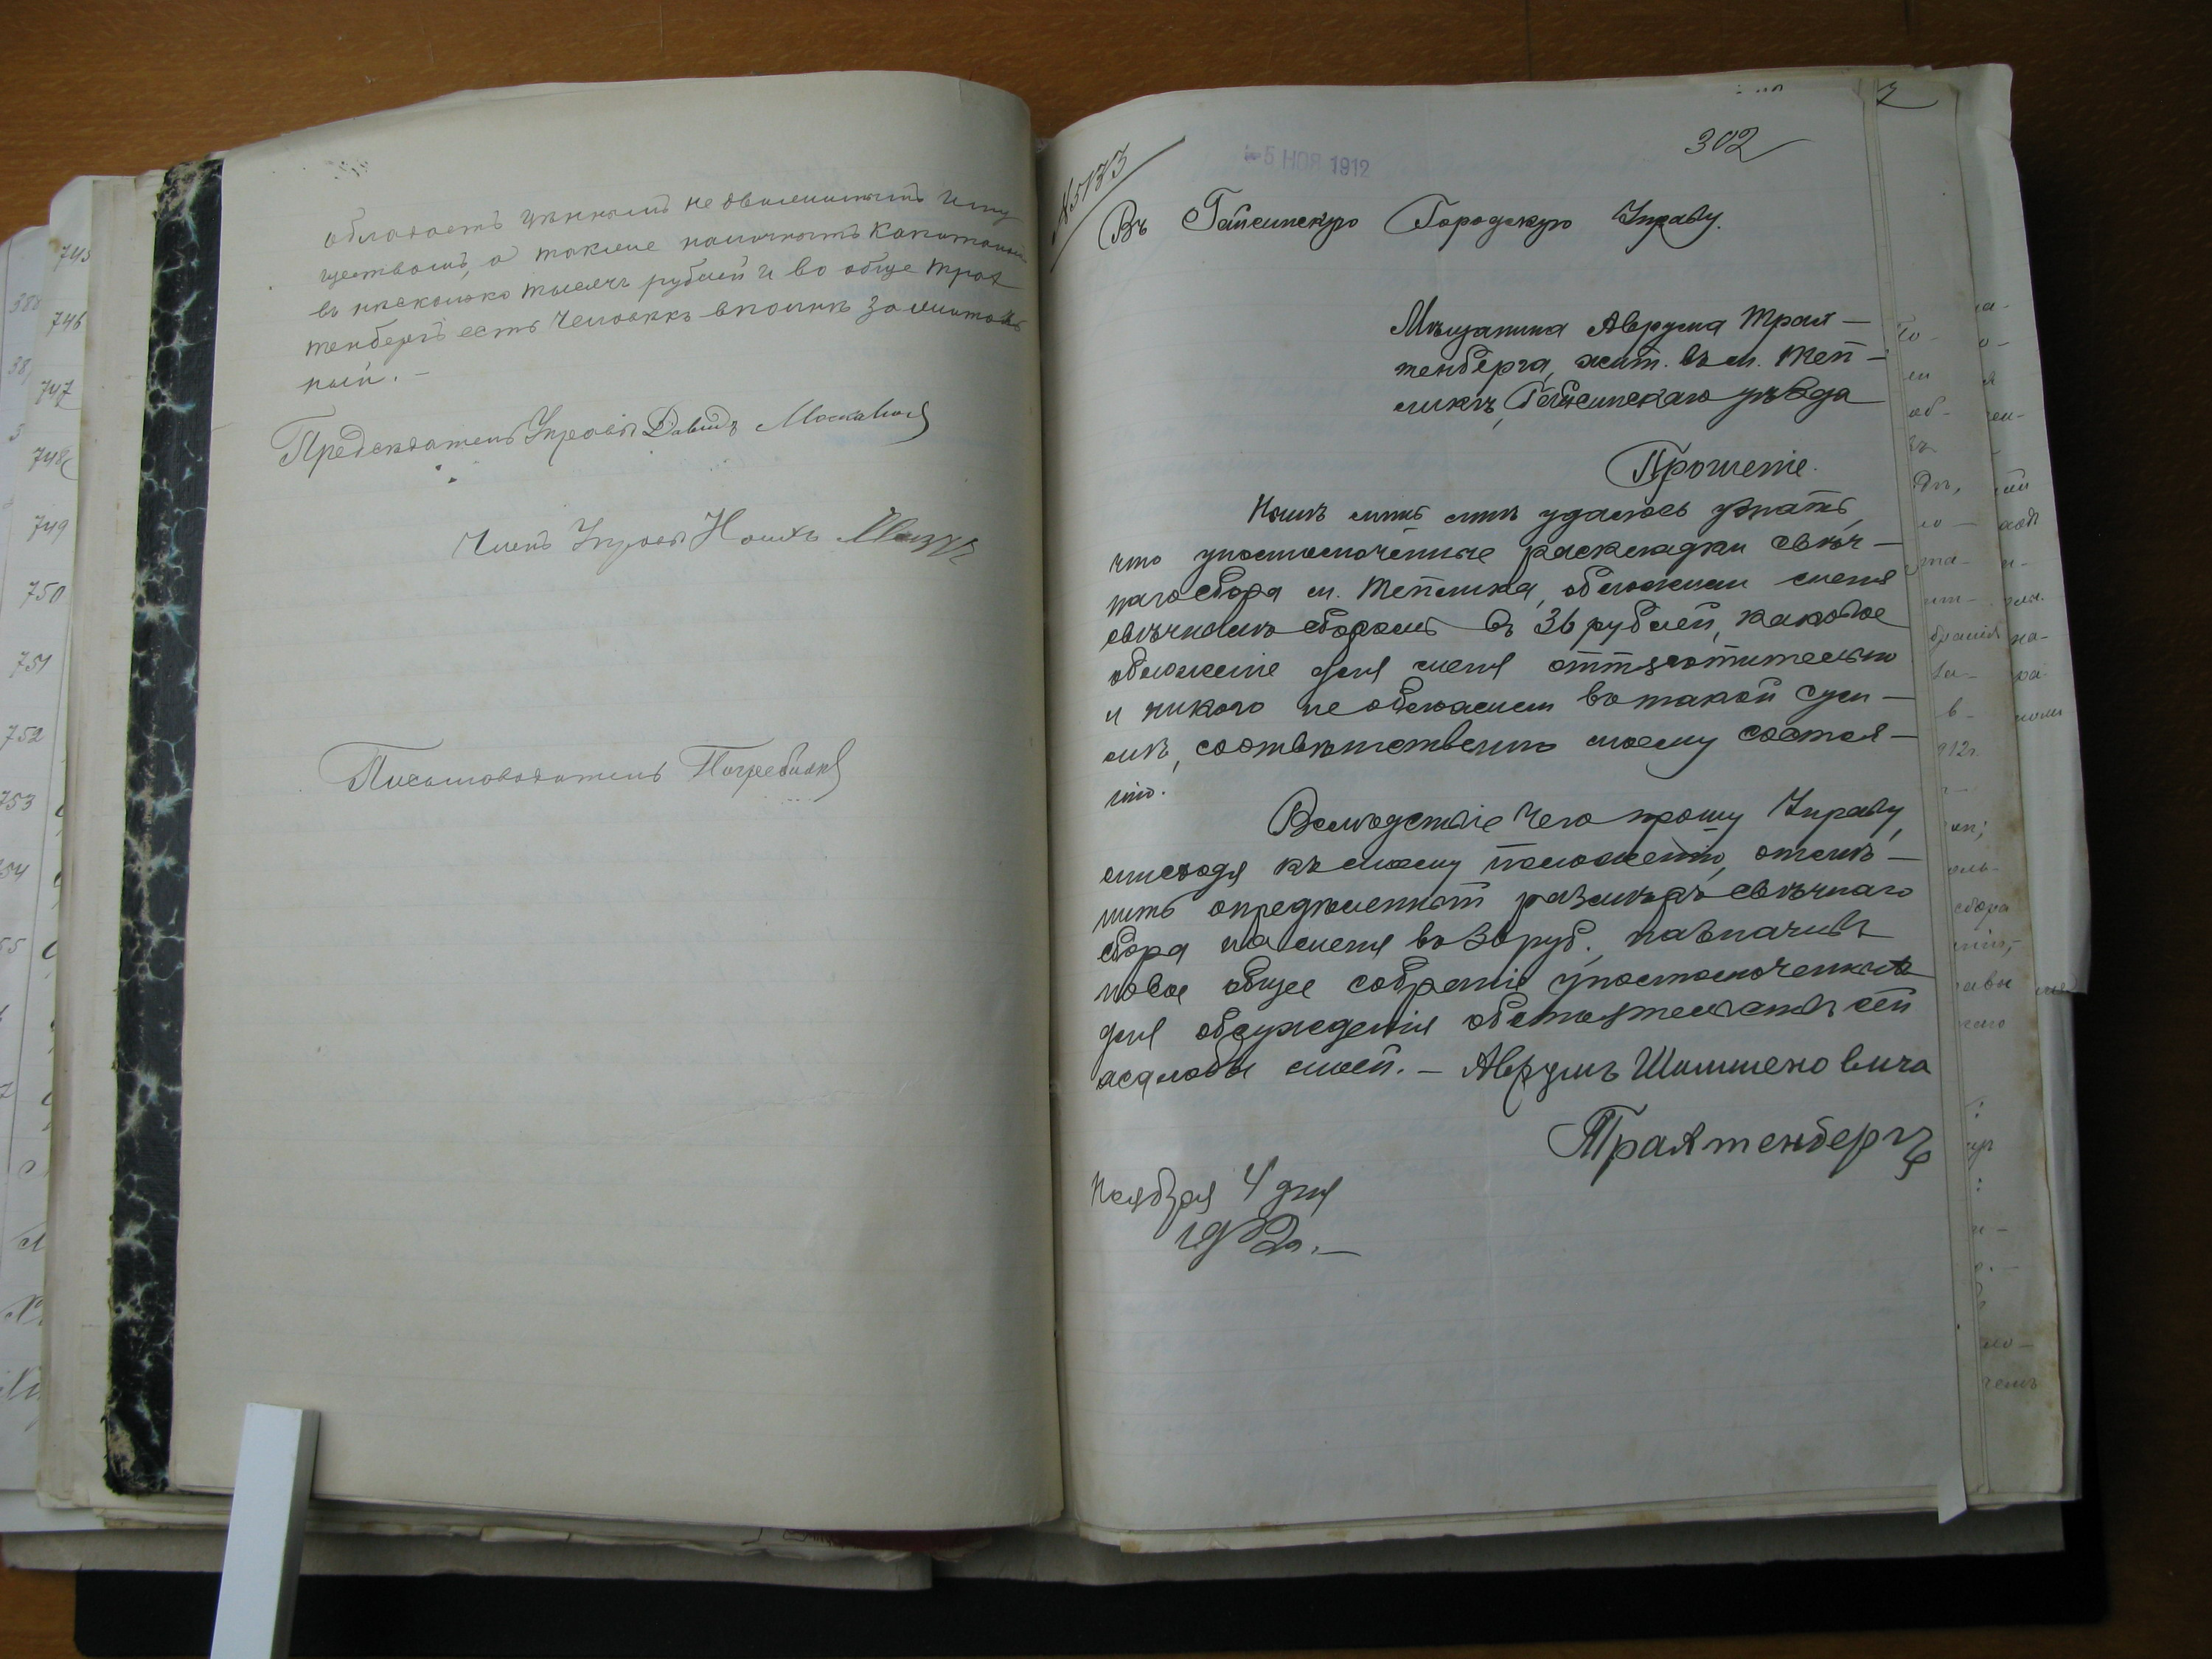 обладаетъ цѣннымъ недвижимымъ иму
ществомъ, а также наличнымъ капиталомъ
въ нѣсколько тысячъ рублей и вообще Трах
тенбергъ есть человѣкъ вполнѣ зажиточ
ный. —
Предсѣдатель Управы Давидъ
Членъ Управы
Письмоводитель
5 НОЯ 1912
302
Въ Гайсинскую Городскую Управу.
Мѣщанина Аврума Трах—
тенберга, жит. въ м. Теп—
ликѣ, Гайсинскаго уѣзда
Прошеніе.
Нынѣ лишь мнѣ удалось узнать,
что уполномоченные раскладки свѣч—
наго сбора м. Теплика, обложили меня
свѣчнымъ сборомъ въ 36 рублей, каковое
обложеніе для меня отяготительно
и никого не обложили въ такой сум—
мѣ, соотвѣтственно моему состоя—
нію.
Вслѣдствіе чего прошу Управу,
снисходя къ моему положенію, отмѣ—
нить опредѣленный размѣръ свѣчнаго
сбора на меня въ 36 руб. назначивъ
новое общее собраніе уполномоченныхъ
для обсужденія обстоятельствъ сей
жалобы моей. — Аврумъ
Трахтенбергъ
Ноября 4 дня
1912 г. —
745
746
747
748
749
750
751
752
753